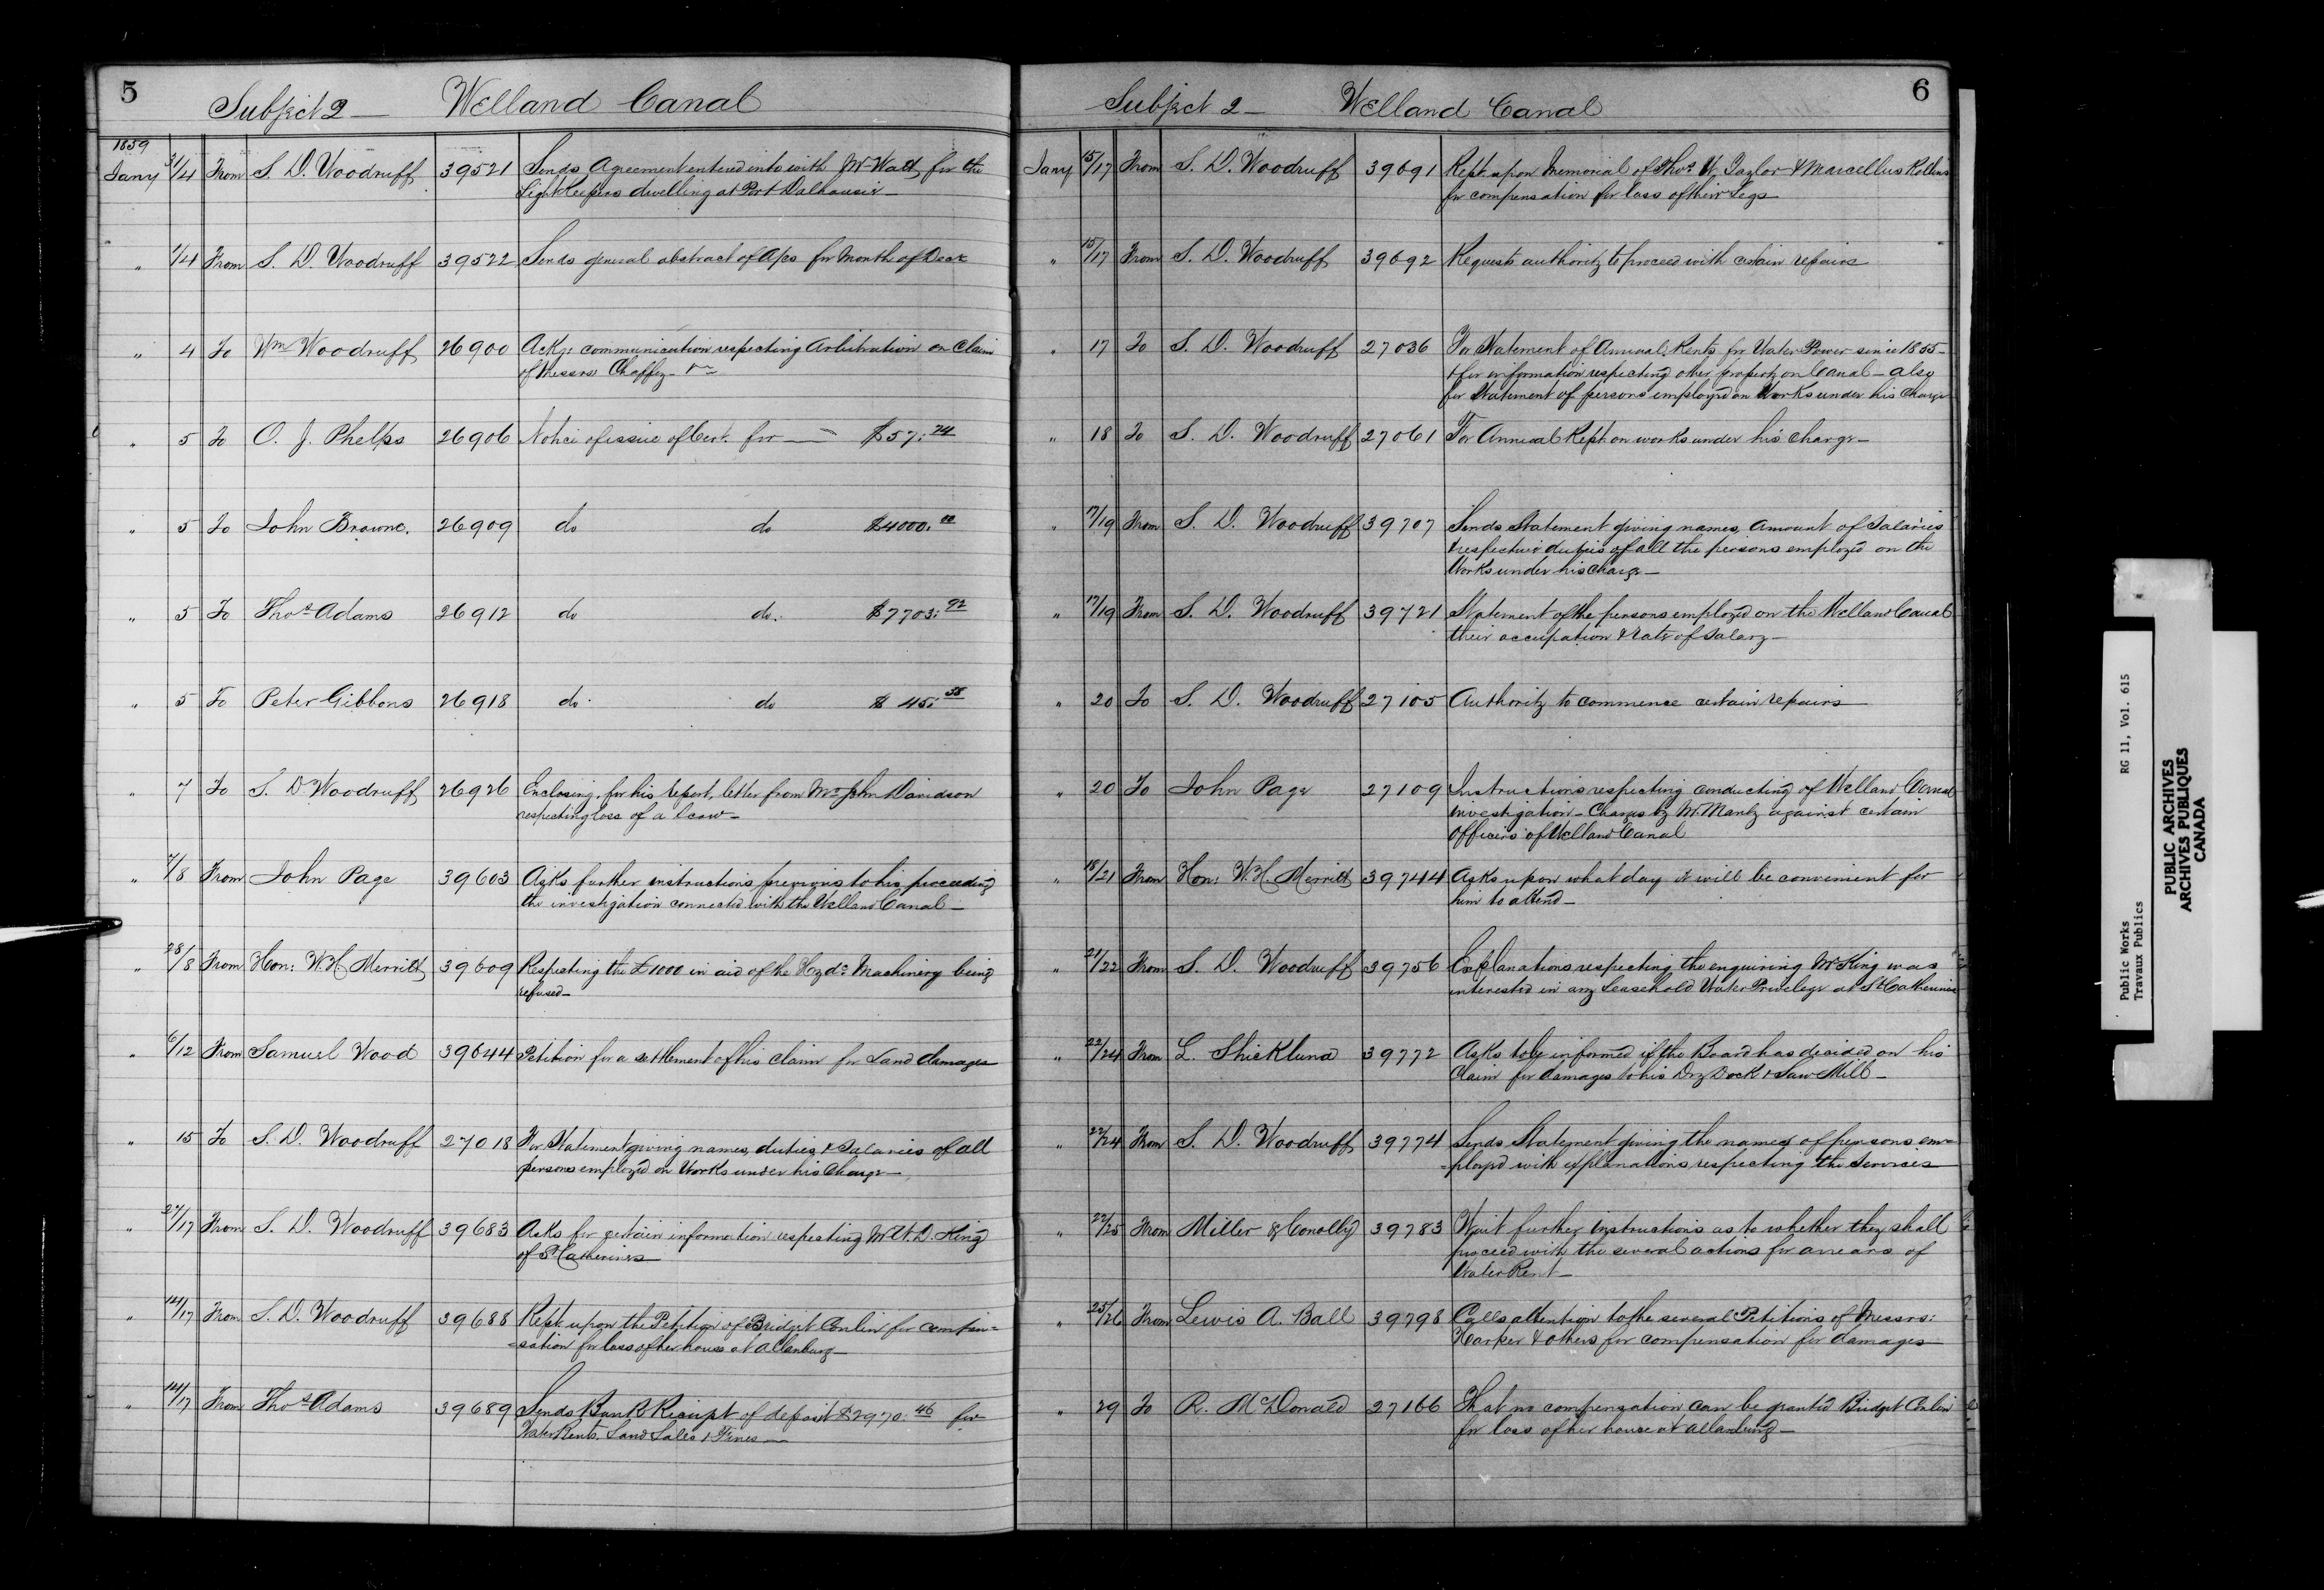 5
Subject 2 — Welland Canal
1859
Jany 31/4 From S. D. Woodruff 39521 Sends Agreement entered into with Mr Watt for the
Light Keepers dwelling at Port Dalhousie —
" 1/4 From S. D. Woodruff 39522 Sends general abstract of a/cs for Month of Decr
" 4 To Wm Woodruff 26900 Ackg: communication respecting Arbitration on Claim
of Messrs Chaffey —
" 5 To O. J. Phelps 26906 Notice of issue of Cert. for — $57.24
" 5 To John Browne. 26909 do do $4000.00
" 5 To Thos Adams 26912 do do. $7703.92
" 5 To Peter Gibbons 26918 do do $ 45.38
" 7 To S. D Woodruff 26926 Enclosing, for his report, letter from Mr John Davidson
respecting loss of a Scow —
" 7/8 From John Page 39603 Asks further instructions previous to his proceeding
the investigation connected with the Welland Canal —
" 28/8 From Hon: W. H Merritt 39609 Respecting the £1000 in aid of the Hydc Machinery being
refused —
" 6/12 From Samuel Wood 39644 Petition for a settlement of his claim for Land damages
" 15 To S. D. Woodruff 27018 For Statement giving names, duties & Salaries of all
persons employed on Works under his Charge —
" 27/17 From S. D. Woodruff 39683 Asks for certain information respecting Mr W. D. King
of St Catherines
" 14/17 From S. D. Woodruff 39688 Rept upon the Petition of Bridget Conlin for compen=
=sation for loss of her house at Allanburg —
" 14/17 From Thos Adams 39689 Sends Bank Receipt of deposit $2970.46 for
Water Rents, Land Sales & Fines —
6
Subject 2 — Welland Canal
Jany 15/17 From S. D. Woodruff 39691 Rept upon Memorial of Thos W. Taylor & Marcellus Rollins
for compensation for loss of their Legs
" 15/17 From S. D. Woodruff 39692 Requests authority to proceed with certain repairs
" 17 To S. D. Woodruff 27036 For Statement of Annual Rents for Water Power since 1855 —
& for information respecting other property on Canal — also
for Statement of persons employed on Works under his Charge
" 18 To S. D. Woodruff 27061 For Annual Rept on works under his charge —
" 17/19 From S. D. Woodruff 39707 Sends Statement giving names, Amount of Salaries
& respective duties of all the persons employed on the
Works under his Charge —
" 17/19 From S. D. Woodruff 39721 Statement of the persons employed on the Welland Canal
their occupation & rate of Salary —
" 20 To S. D. Woodruff 27105 Authority to commence certain repairs
" 20 To John Page 27109 Instructions respecting conducting of Welland Canal
investigation — Charges by Mr. Manly against certain
Officers of Welland Canal
" 18/21 From Hon: W. H. Merritt 39744 Asks upon what day it will be convenient for
him to attend —
" 21/22 From S. D. Woodruff 39756 Explanations respecting the enquiring Mr King was
interested in any Leasehold Water Privilege at St Catherines
" 22/24 From L. Shickluna 39772 Asks to be informed if the Board has decided on his
Claim for damages to his Dry Dock & Saw Mill —
" 22/24 From S. D. Woodruff 39774 Sends Statement giving the names of persons em=
=ployed with explanations respecting the Services
" 22/25 From Miller & Conolly 39783 Wait further instructions as to whether they shall
proceed with the several actions for arrears of
Water Rent —
" 25/26 From Lewis A. Ball 39798 Calls attention to the several Petitions of Messrs:
Harper & others for compensation for damages
" 29 To R. McDonald 27166 That no compensation can be granted Bridget Conlin
for loss of her house at Allanburg —
Public Works RG 11, Vol. 615
Travaux Publics
PUBLIC ARCHIVES
ARCHIVES PUBLIQUES
CANADA